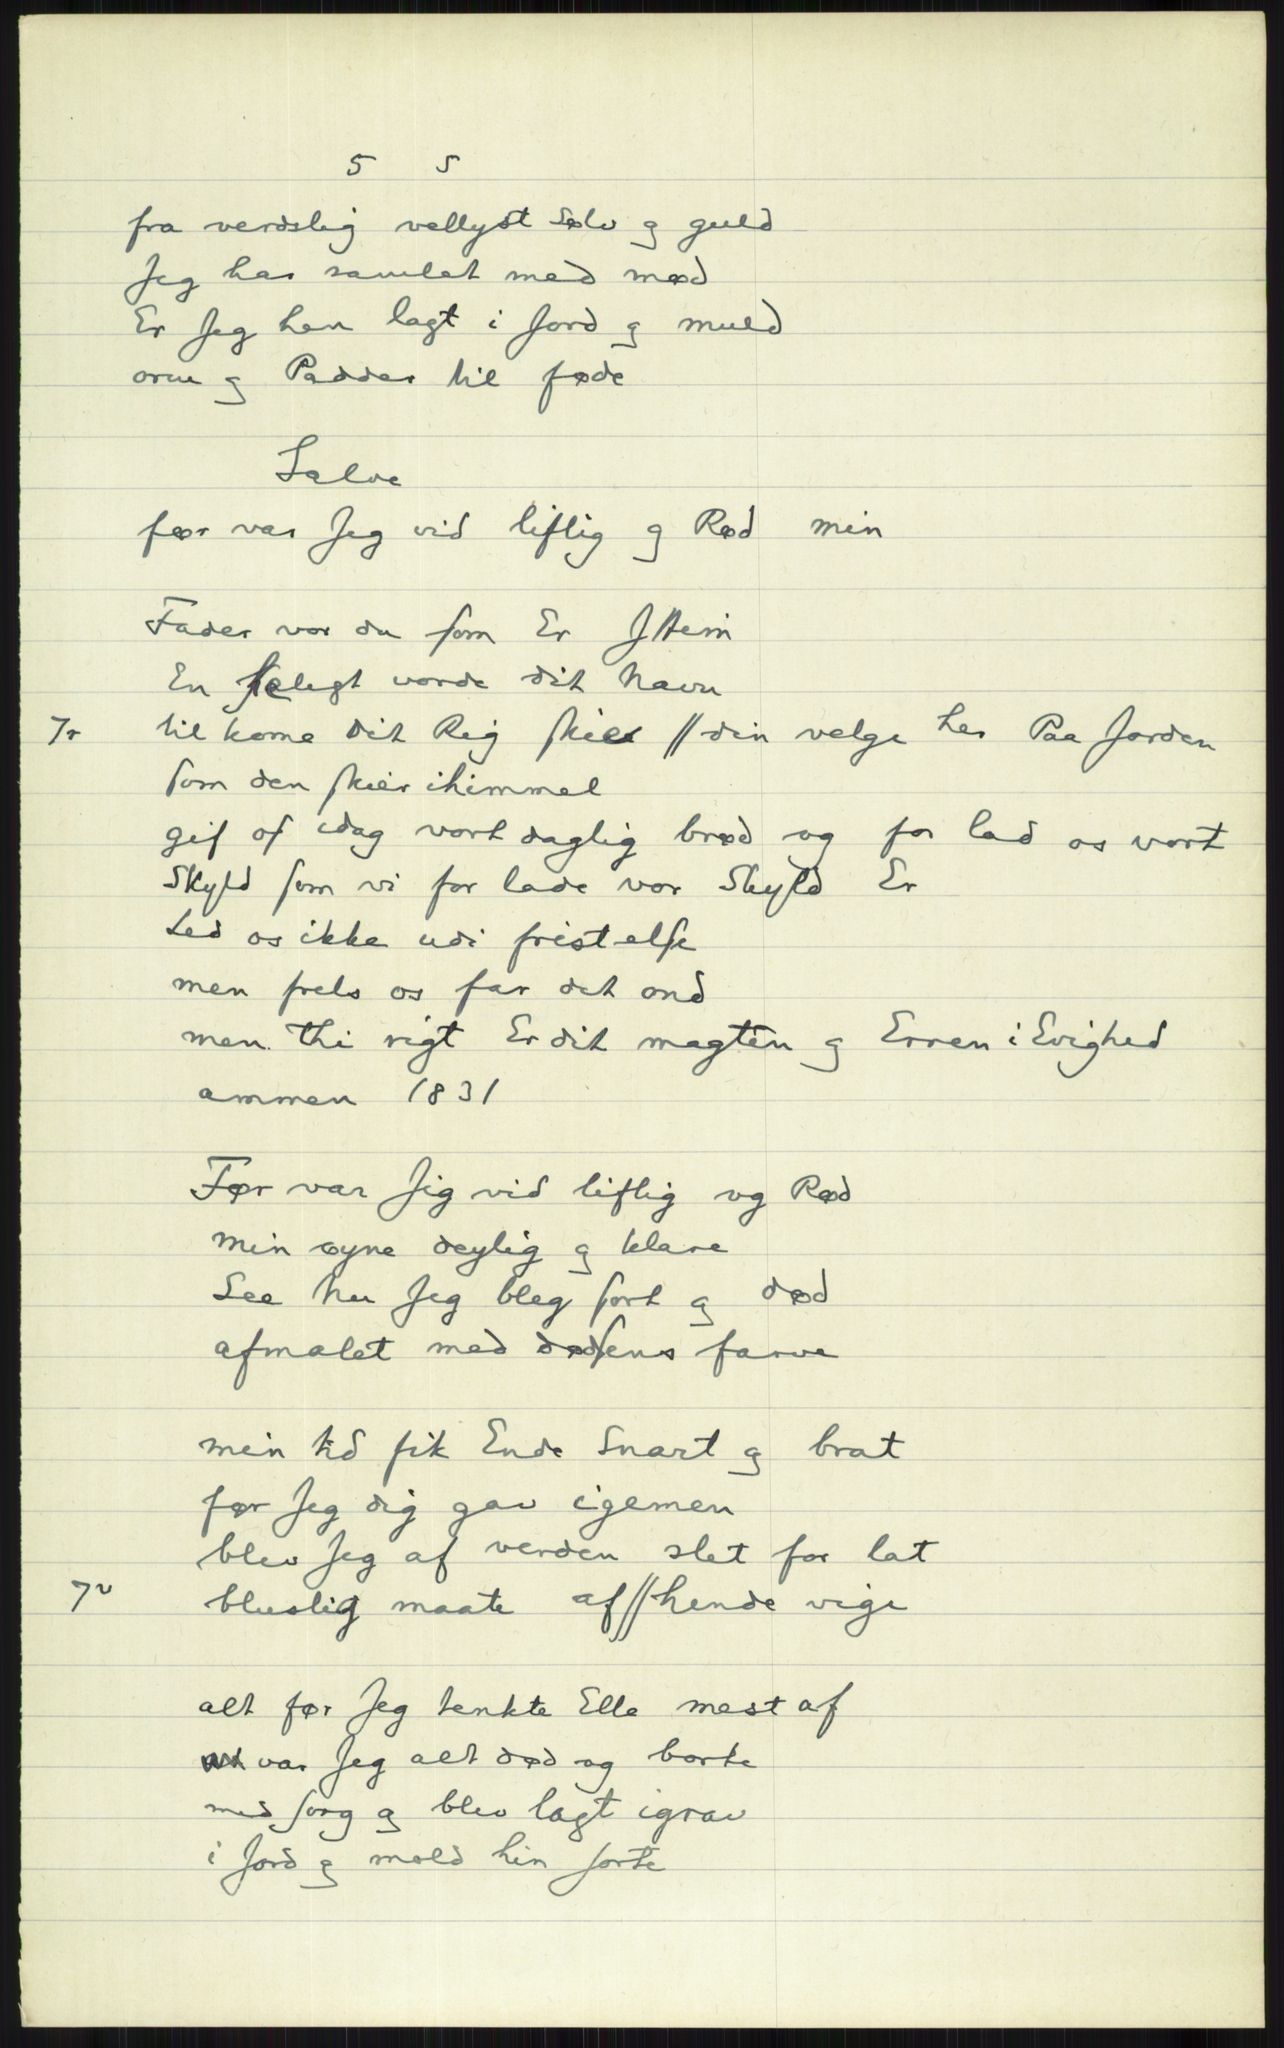 5 5
fra verdslig vellyst Sølv og guld
Jeg har samlet med mød
Er Jeg hen lagt i Jord og muld
orm og Padder til føde
Salve
før var Jeg vid liflig og Rød min
Fader vor du som Er J Hem
En helegt vorde dit Navn
7r til kome dit Rig skier // din velge her Paa Jorden
som den skier ihimmel
gif os idag vort daglig brød og for lad os vort
Skyld som vi for lade vor Skyld Er
Led os ikke udi fristelse
men frels os far det ond
men thi rigt Er dit magten og Erren i Evighed
ammen 1831
Før var Jig vid liflig og Rød
min øyne deylig og klare
See hu Jeg bleg sort og død
afmalet med dødsens farve
mein tid fik Ende Snart og brat
før Jeg dig gav igemen
blev Jeg af verden slet for lat
7v bluslig maate af // hende vige
alt før Jeg tenkte Elle mest af
var Jeg alt død og borte
med sorg og blev lagt igrav
i Jord og mold hin sorte